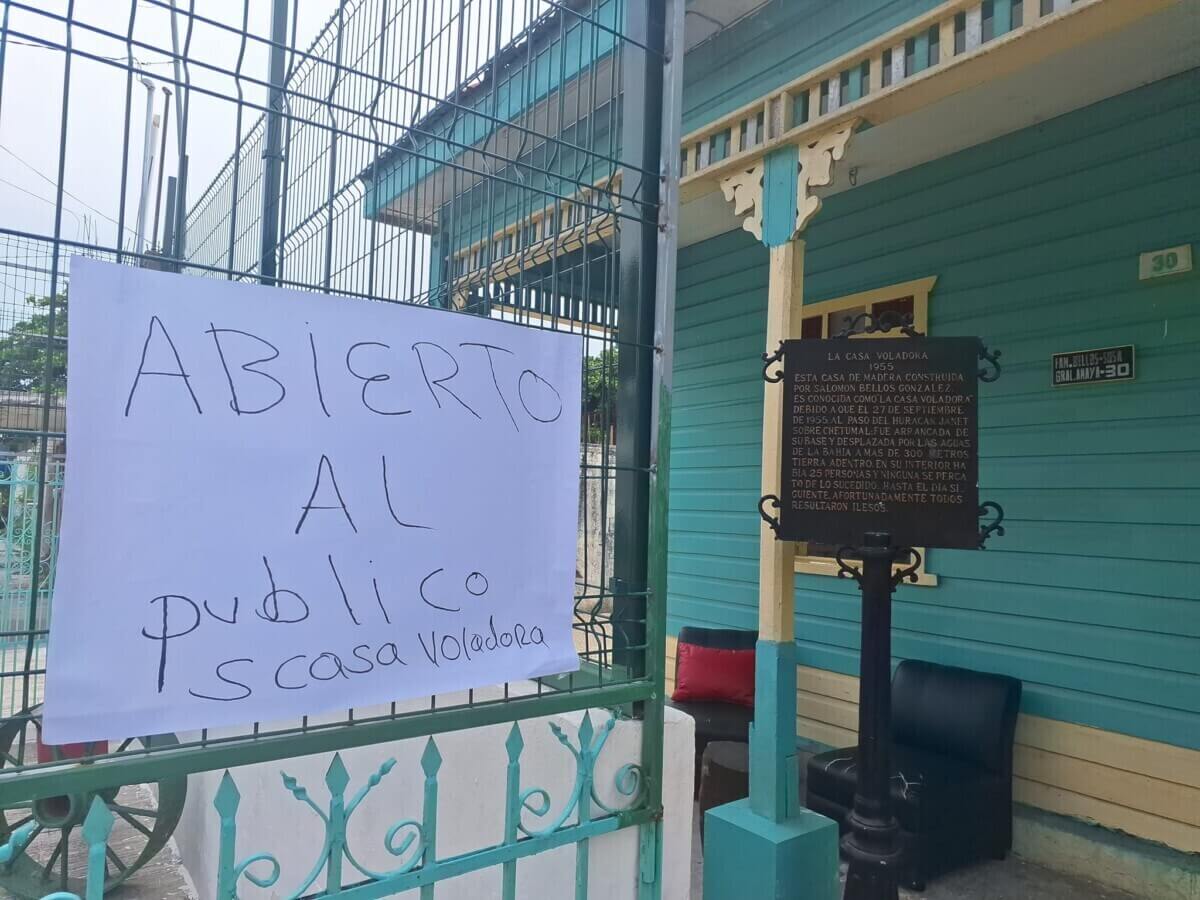 ABIERTO
AL
publico
s casa voladora
LA CASA VOLADORA
1955
ESTA CASA DE MADERA CONSTRUIDA
POR SALOMON BELLOS GONZALEZ,
ES CONOCIDA COMO "LA CASA VOLADORA"
DEBIDO A QUE EL 27 DE SEPTIEMBRE
DE 1955, AL PASO DEL HURACAN JANET
SOBRE CHETUMAL; FUE ARRANCADA DE
SU BASE Y DESPLAZADA POR LAS AGUAS
DE LA BAHIA A MAS DE 300 METROS
TIERRA ADENTRO. EN SU INTERIOR HA
BIA 25 PERSONAS Y NINGUNA SE PERCA
TO DE LO SUCEDIDO, HASTA EL DIA SI
GUIENTE, AFORTUNADAMENTE TODOS
RESULTARON ILESOS.
30
FAM. BELLOS-SOSA
GRAL. ANAYA-30